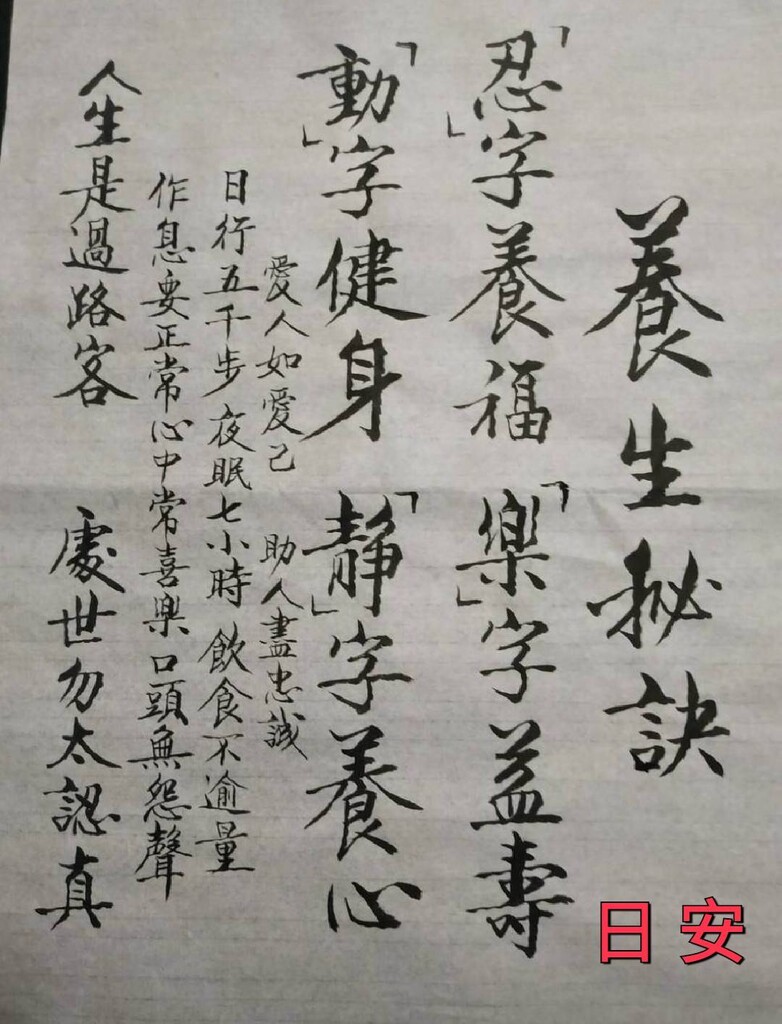 養生秘訣
「忍」字養福 「樂」字益壽
「動」字健身 「静」字養心
愛人如愛己 助人盡忠誠
日行五千步 夜眠七小時 飲食不逾量
作息要正常 心中常喜樂 口頭無怨聲
人生是過路客 處世勿太認真
日安